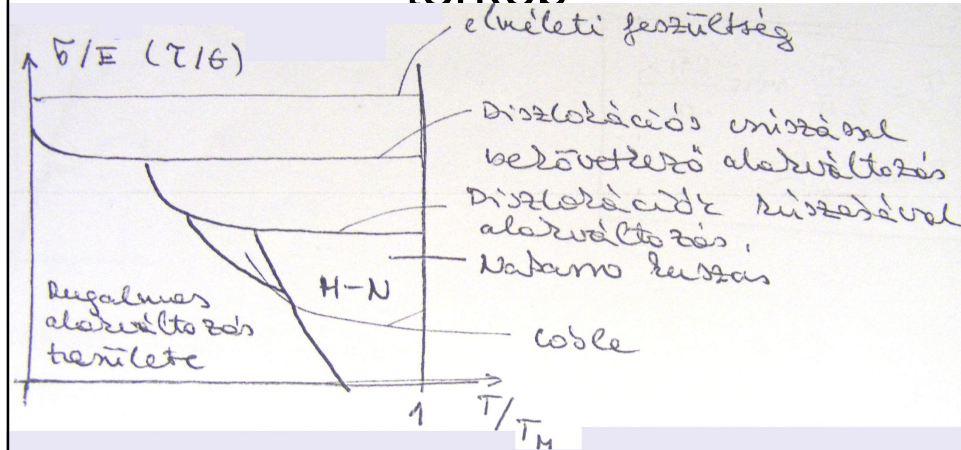 térkép
elméleti feszültség
σ/E (τ/G)
Diszlokációs csúszással
bekövetkező alakváltozás
Diszlokációk kúszásával
alakváltozás.
Nabarro kúszás
H-N
Rugalmas
alakváltozás
területe
coble
1
T/TM